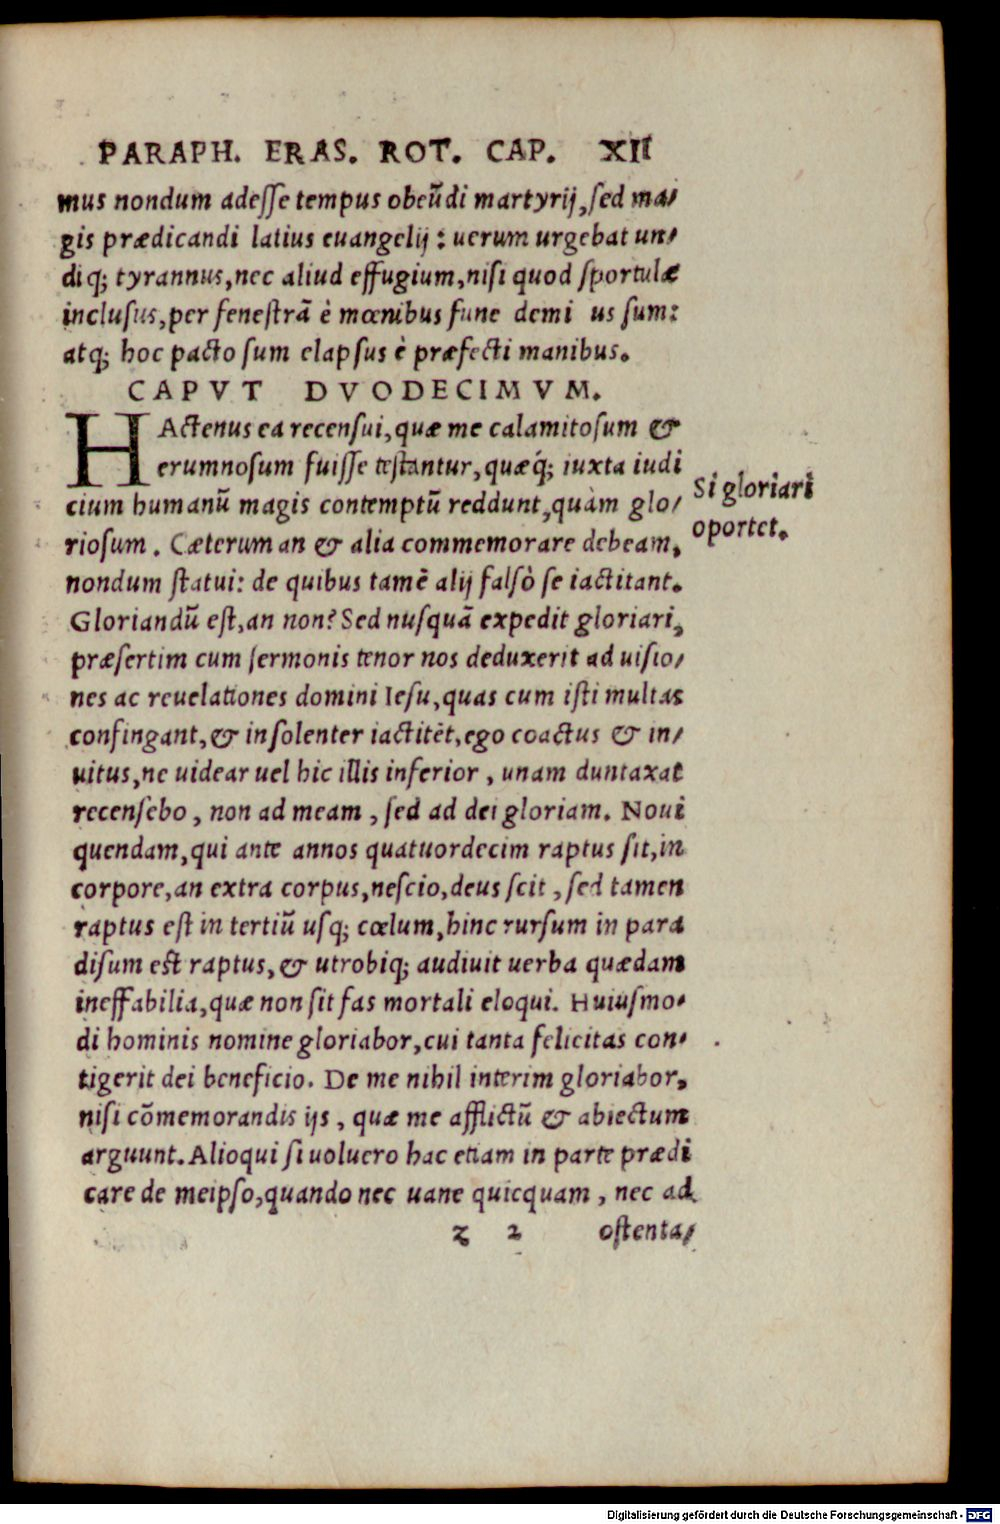 PARAPH. ERAS. ROT. CAP. XII
mus nondum adesse tempus obeũdi martyrij, sed ma/
gis prædicandi latius euangelij: uerum urgebat un/
diq; tyrannus, nec aliud effugium, nisi quod sportulæ
inclusus, per fenestrã è mœnibus fune demi us sum:
atq; hoc pacto sum elapsus è præfecti manibus.
CAPVT DVODECIMVM.
HActenus ea recensui, quæ me calamitosum &
erumnosum fuisse testantur, quæq́; iuxta iudi
cium humanũ magis contemptũ reddunt, quàm glo/
riosum. Cæterum an & alia commemorare debeam,
nondum statui: de quibus tamẽ alij falsò se iactitant.
Gloriandũ est, an non? Sed nusquã expedit gloriari,
præsertim cum sermonis tenor nos deduxerit ad uisio/
nes ac reuelationes domini Iesu, quas cum isti multas
confingant, & insolenter iactitẽt, ego coactus & in/
uitus, ne uidear uel hic illis inferior, unam duntaxat
recensebo, non ad meam, sed ad dei gloriam. Noui
quendam, qui ante annos quatuordecim raptus sit, in
corpore, an extra corpus, nescio, deus scit, sed tamen
raptus est in tertiũ usq; cœlum, hinc rursum in para
disum est raptus, & utrobiq; audiuit uerba quædam
ineffabilia, quæ non sit fas mortali eloqui. Huiusmo/
di hominis nomine gloriabor, cui tanta felicitas con/
tigerit dei beneficio. De me nihil interim gloriabor,
nisi cõmemorandis ijs, quæ me afflictũ & abiectum
arguunt. Alioqui si uoluero hac etiam in parte prædi
care de meipso, quando nec uane quicquam, nec ad
z 2 ostenta/
Si gloriari
oportet.
Digitalisierung gefördert durch die Deutsche Forschungsgemeinschaft - DFG